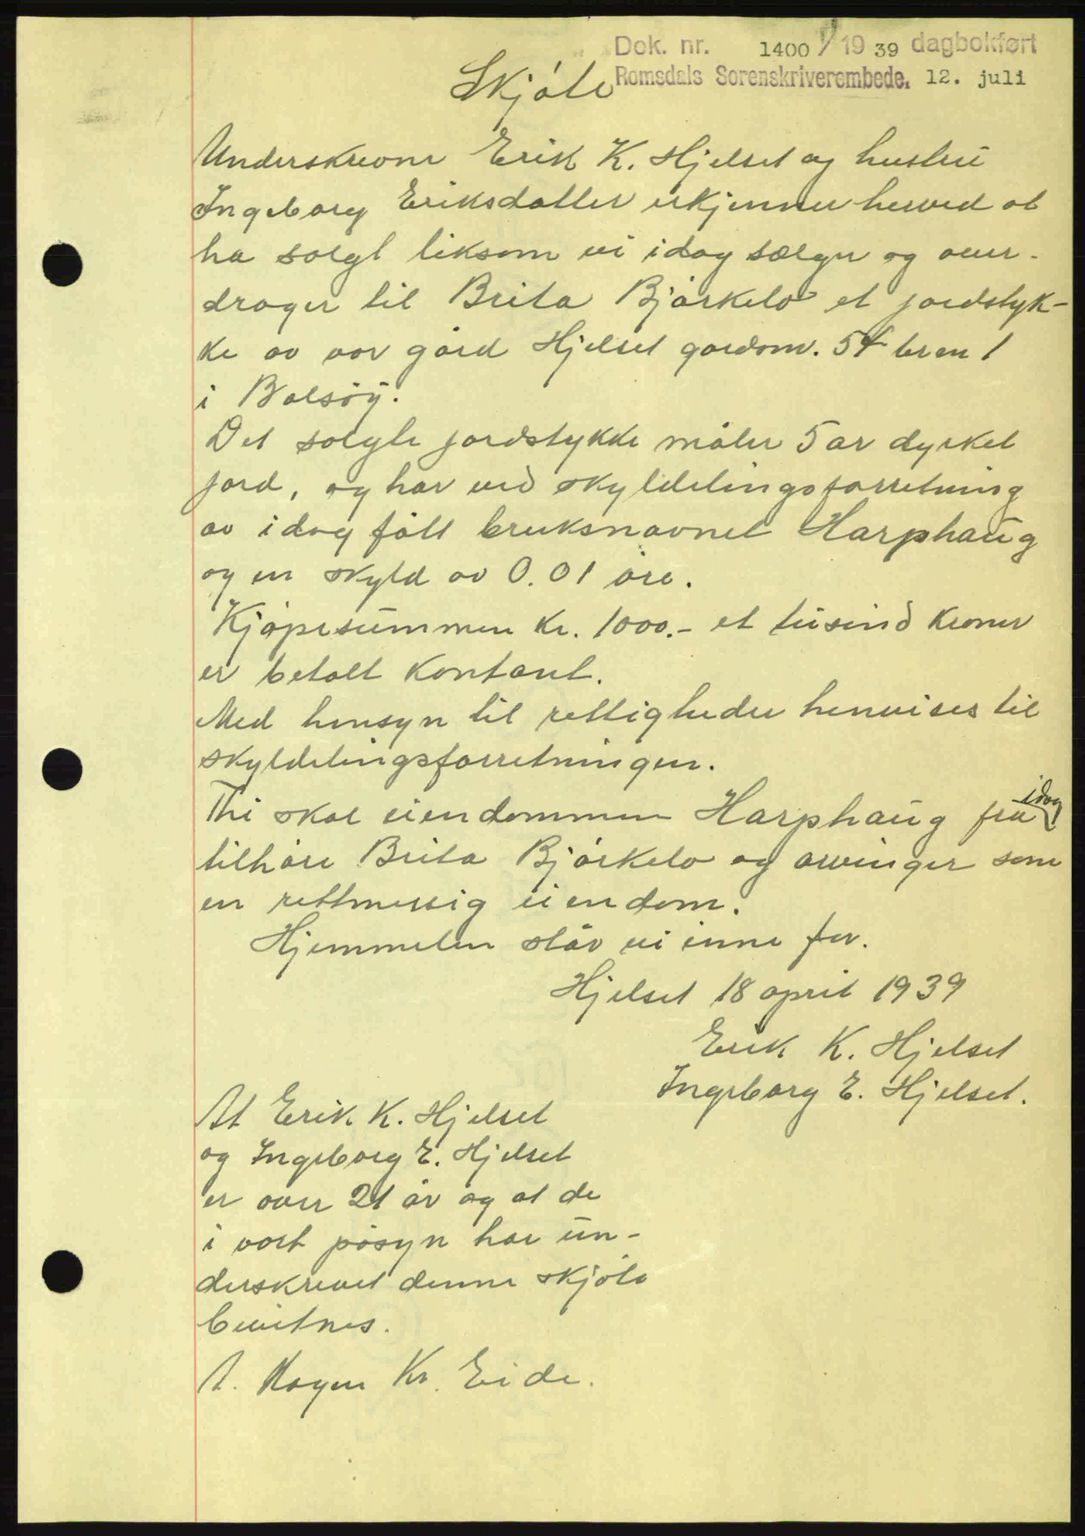 Dok. nr. 1400 / 1939 dagbokført
Romsdals Sorenskriverembede. 12. juli
Skjøte
Underskrevne Erik K. Hjelset og hustru
Ingeborg Eriksdatter erkjenner herved at
ha solgt liksom vi idag sælger og over-
drager til Brita Bjørkelo et jordstyk-
ke av vor gård Hjelset gardsnr. 54 br en 1
i Bolsøy.
Det solgte jordstykke måler 5 ar dyrket
jord, og har ved skyldelingsforretning
av idag fått bruksnavnet Harphaug
og en skyld av 0.01 øre.
Kjøpesummen kr. 1000.- et tusind kroner
er betalt kontant.
Med hensyn til rettigheder henvises til
skyldelingsforretningen.
Thi skal eiendommen Harphaug fra idag
tilhøre Brita Bjørkelo og arvinger som
en rettmessig eiendom.
Hjemmelen står vi inne for.
Hjelset 18 april 1939
Erik K. Hjelset
Ingeborg E. Hjelset.
At Erik K. Hjelset
og Ingeborg E. Hjelset
er over 21 år og at de
i vort påsyn har un-
derskrevet denne skjøte
bevitnes.
A. Hagen Kr. Eide.